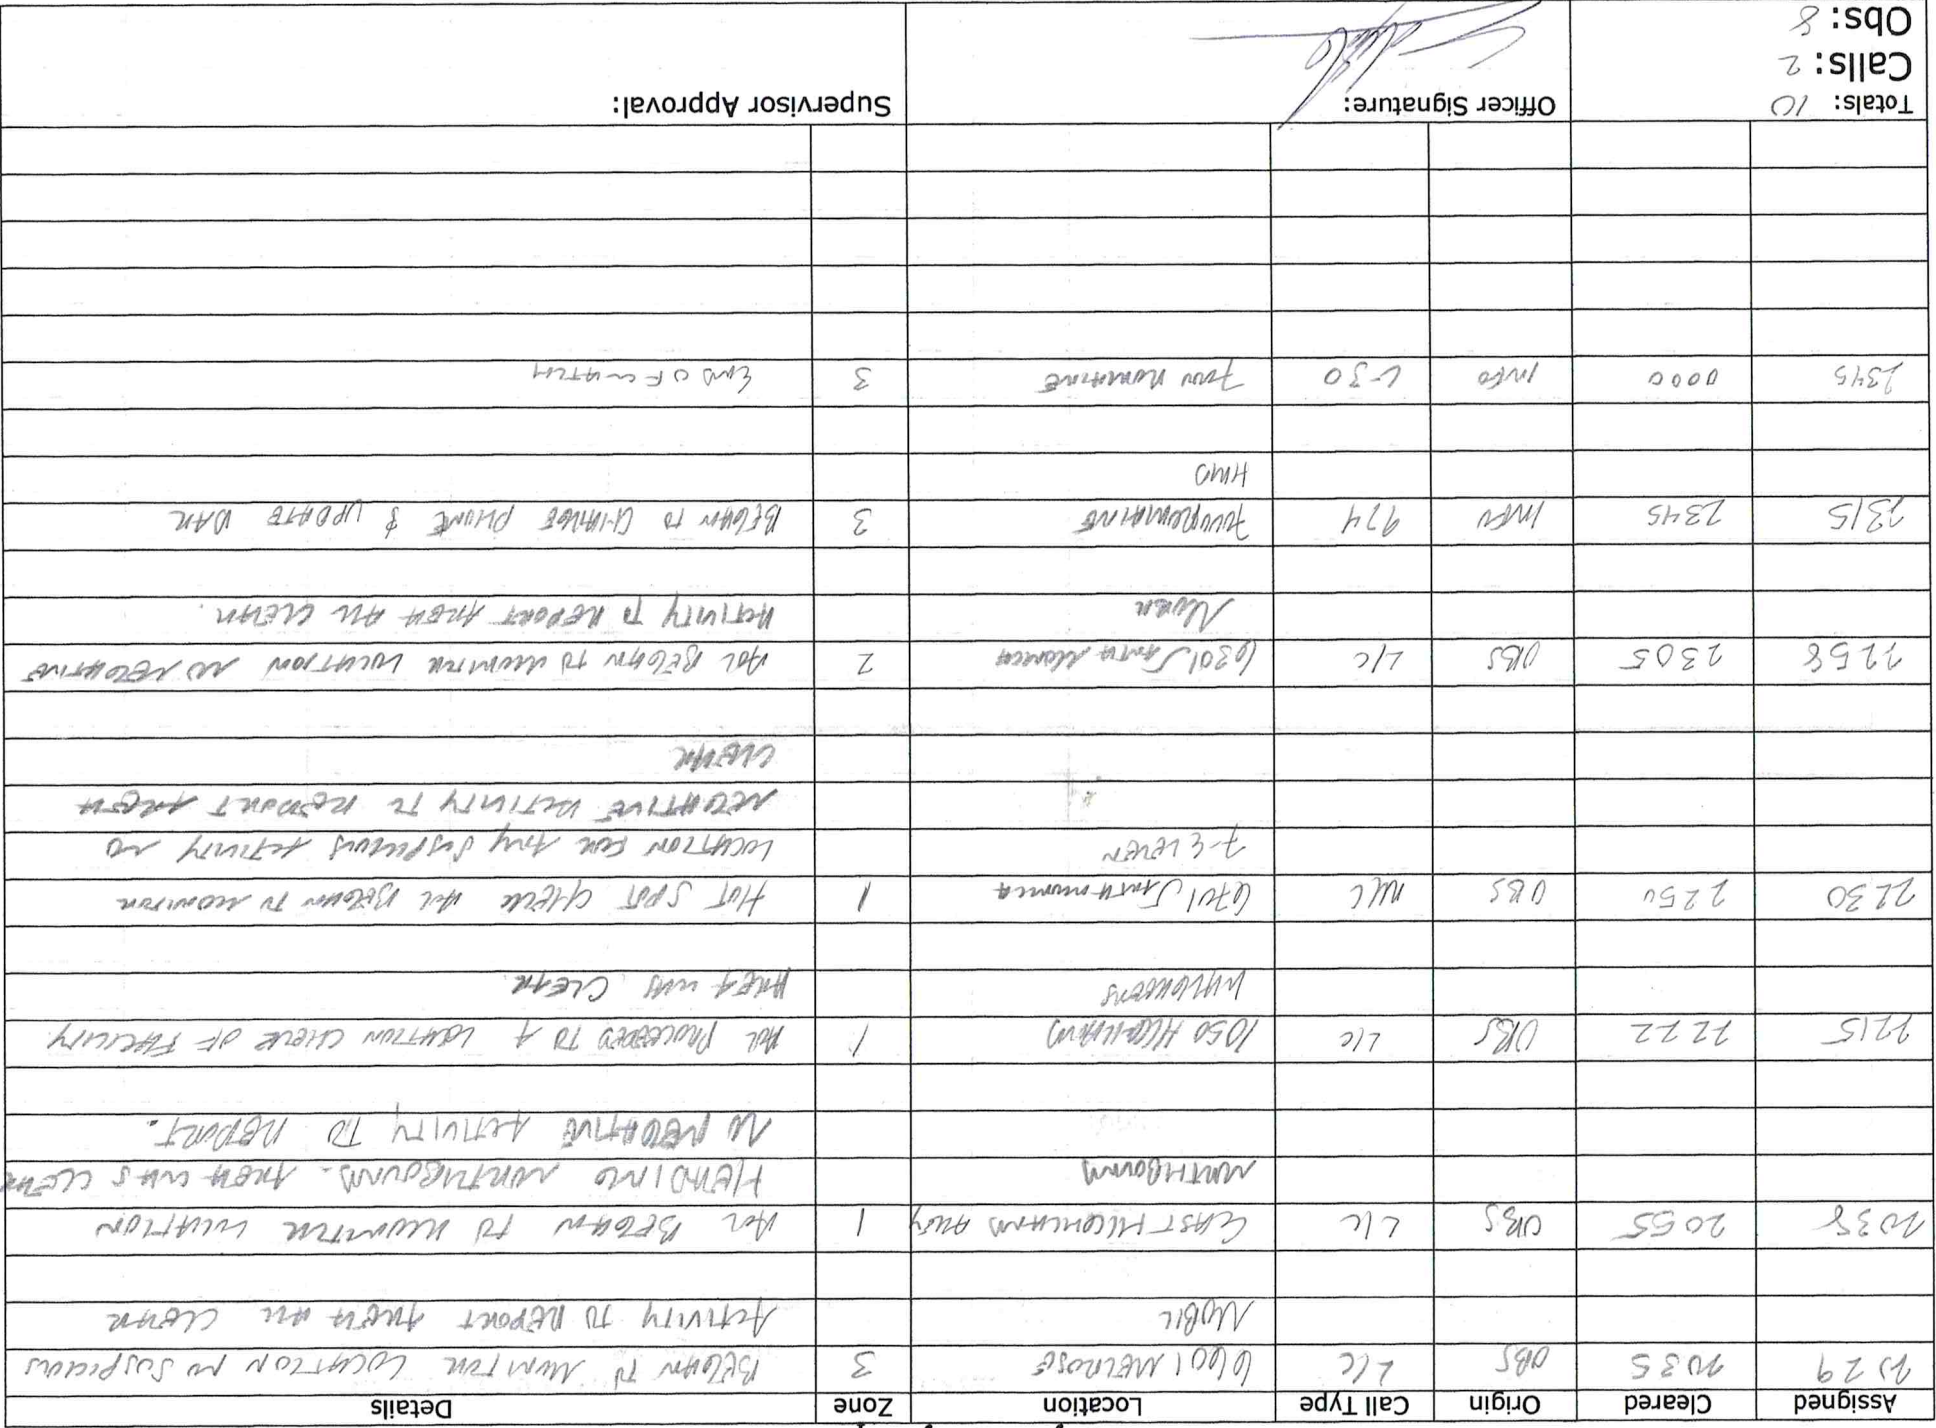 Assigned Cleared Origin Call Type Location Zone Details
2029 2035 OBS L/C 6601 MELROSE 3 BEGAN TO MONITOR LOCATION NO SUSPICIOUS
MOBIL ACTIVITY TO REPORT AREA ALL CLEAR
2038 2055 OBS L/C EAST HIGHLAND ALLEY 1 BEGAN TO MONITOR LOCATION
NORTHBOUND HEADING NORTHBOUND. AREA WAS CLEAR
NO NEGATIVE ACTIVITY TO REPORT.
2215 2222 OBS L/C 1050 HIGHLAND 1 PROCEEDED TO A LOCATION CHECK OF FACILITY
WALGREENS AREA WAS CLEAR.
2230 2250 OBS 6701 SANTA MONICA 1 HOT SPOT CHECK BEGAN TO MONITOR
7-ELEVEN LOCATION FOR ANY SUSPICIOUS ACTIVITY NO
NEGATIVE ACTIVITY TO REPORT AREA
CLEAR
2258 2305 OBS L/C 6301 SANTA MONICA 2 BEGAN TO MONITOR LOCATION NO NEGATIVE
ACTIVITY TO REPORT AREA ALL CLEAR.
2315 2345 INFO 924 3 BEGAN TO CHANGE PHONE & UPDATE DAR
HWD
2345 0000 INFO 3 END OF WATCH
Totals: 10 Officer Signature: Supervisor Approval:
Calls: 2
Obs: 8